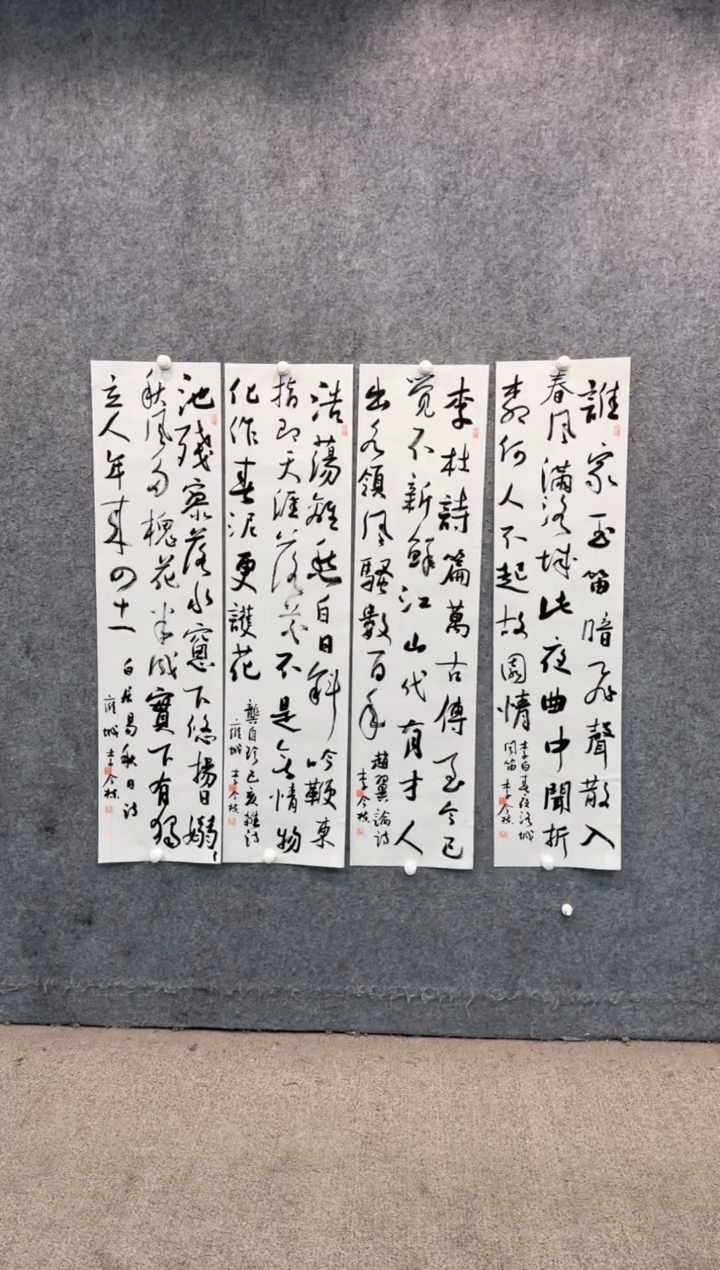 誰家玉笛暗飛聲散入
春風滿洛城此夜曲中聞折
柳何人不起故園情
李白春夜洛城
聞笛 李今
李杜詩篇萬古傳至今已
覺不新鮮江山代有才人
出各領風騷數百年
趙翼論詩
李今
浩蕩離愁白日斜吟鞭東
指即天涯落花不是無情物
化作春泥更護花
龔自珍己亥雜詩
雍城 李今
池殘寥落水窗下悠揚日嫋嫋
秋風多槐花半成實下有獨
立人年來四十一
白居易秋日詩
雍城 李今